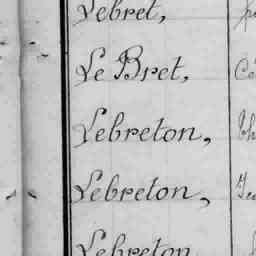 Lebret,
Le Bret,
Lebreton,
Lebreton,
Lebreton